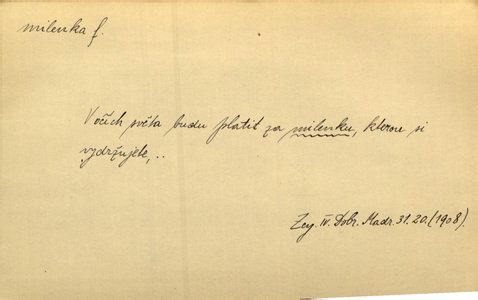 milenka f.
V očích světa budu platit za milenku, kterou si
vydržujete,..
Zey. IV. Dobr. Madr. 31. 20. (1908).